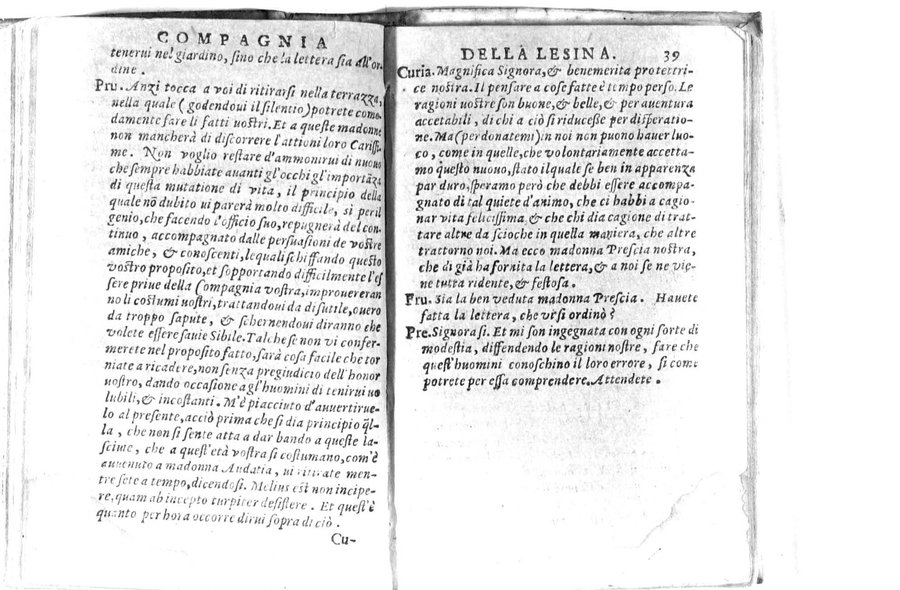 COMPAGNIA
tenerui nel giardino, sino che la lettera sia all'or-
dine.
Pru. Anzi tocca a voi di ritirarsi nella terrazza,
nella quale (godendoui il silentio) potrete como-
damente fare li fatti uostri. Et a queste madonne
non mancherà di discorrere l'attioni loro Cariss-
me. Non voglio restare d'ammonirui di nuouo
che sempre habbiate auanti gl'occhi gl'importãza
di questa mutatione di vita, il principio della
quale nõ dubito ui parerà molto difficile, sì per il
genio, che facendo l'officio suo, repugnerà del con-
tinuo, accompagnato dalle persuasioni de vostre
amiche, & conoscenti, le quali schiffando questo
vostro proposito, et sopportando difficilmente l'es
sere priue della Compagnia vostra, improuereran
no li costumi uostri, trattandoui da disutile, ouero
da troppo sapute, & schernendoui diranno che
volete essere sauie Sibile. Talche se non vi confer-
merete nel proposito fatto, sarà cosa facile che tor
niate a ricadere, non senza pregiudicio dell'honor
uostro, dando occasione a gl'huomini di tenirui uo
lubili, & incostanti. M'è piacciuto d'auuertirue-
lo al presente, acciò prima che si dia principio q̃l-
la, che non si sente atta a dar bando a queste la-
sciuie, che a quest'età vostra si costumano, com'è
auuenuto a madonna Audatia, ui ritirate men-
tre sete a tempo, dicendosi. Melius est non incipe-
re, quam ab incepto turpiter desistere. Et quest'è
quanto per hora occorre dirui sopra di ciò.
Cu-
DELLA LESINA. 39
Curia. Magnifica Signora, & benemerita protettri-
ce nostra. Il pensare a cose fatte è tempo perso. Le
ragioni uostre son buone, & belle, & per auentura
accetabili, di chi a ciò si riducesse per disperatio-
ne. Ma (perdonatemi) in noi non puono hauer luo-
co, come in quelle, che volontariamente accetta-
mo questo nuouo, stato il quale se ben in apparenza
par duro, speramo però che debbi essere accompa-
gnato di tal quiete d'animo, che ci habbi a cagio-
nar vita felicissima & che chi dia cagione di trat-
tare altre da scioche in quella maniera, che altre
trattorno noi. Ma ecco madonna Prescia nostra,
che di già ha fornita la lettera, & a noi se ne vie-
ne tutta ridente, & festosa.
Pru. Sia la ben veduta madonna Prescia. Hauete
fatta la lettera, che vi si ordinò?
Pre. Signora si. Et mi son ingegnata con ogni sorte di
modestia, diffendendo le ragioni nostre, fare che
quest'huomini conoschino il loro errore, si come
potrete per essa comprendere. Attendete.